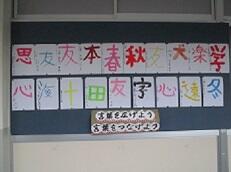 思 友 友 本 春 秋 友 犬 楽 学
心 海 十 田 友 字 心 遠 冬
言葉を広げよう
言葉をつなげよう